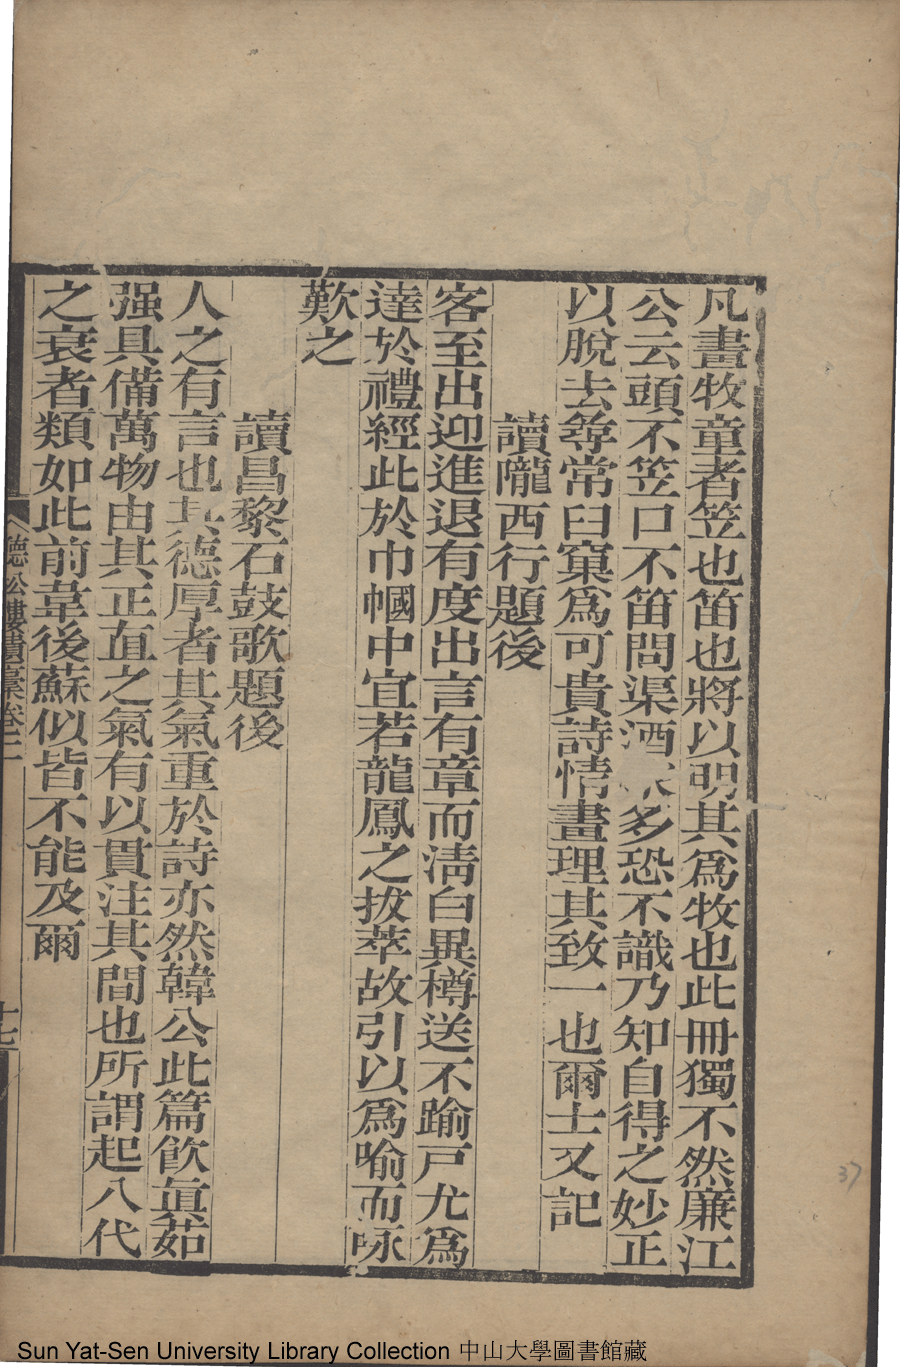 凡畫牧童者笠也笛也將以明其爲牧也此冊獨不然廉江
公云頭不笠口不笛問渠酒多恐不識乃知自得之妙正
以脫去尋常臼窠爲可貴詩情畫理其致一也爾士又記
讀隴西行題後
客至出迎進退有度出言有章而淸白異樽送不踰戸尤爲
達於禮經此於巾幗中宜若龍鳳之拔萃故引以爲喻而咏
歎之
讀昌黎石鼓歌題後
人之有言也其德厚者其氣重於詩亦然韓公此篇飮眞茹
强具備萬物由其正直之氣有以貫注其間也所謂起八代
之衰者類如此前韋後蘇似皆不能及爾
德公樓遺稾卷二
十七
37
Sun Yat-Sen University Library Collection 中山大學圖書館藏